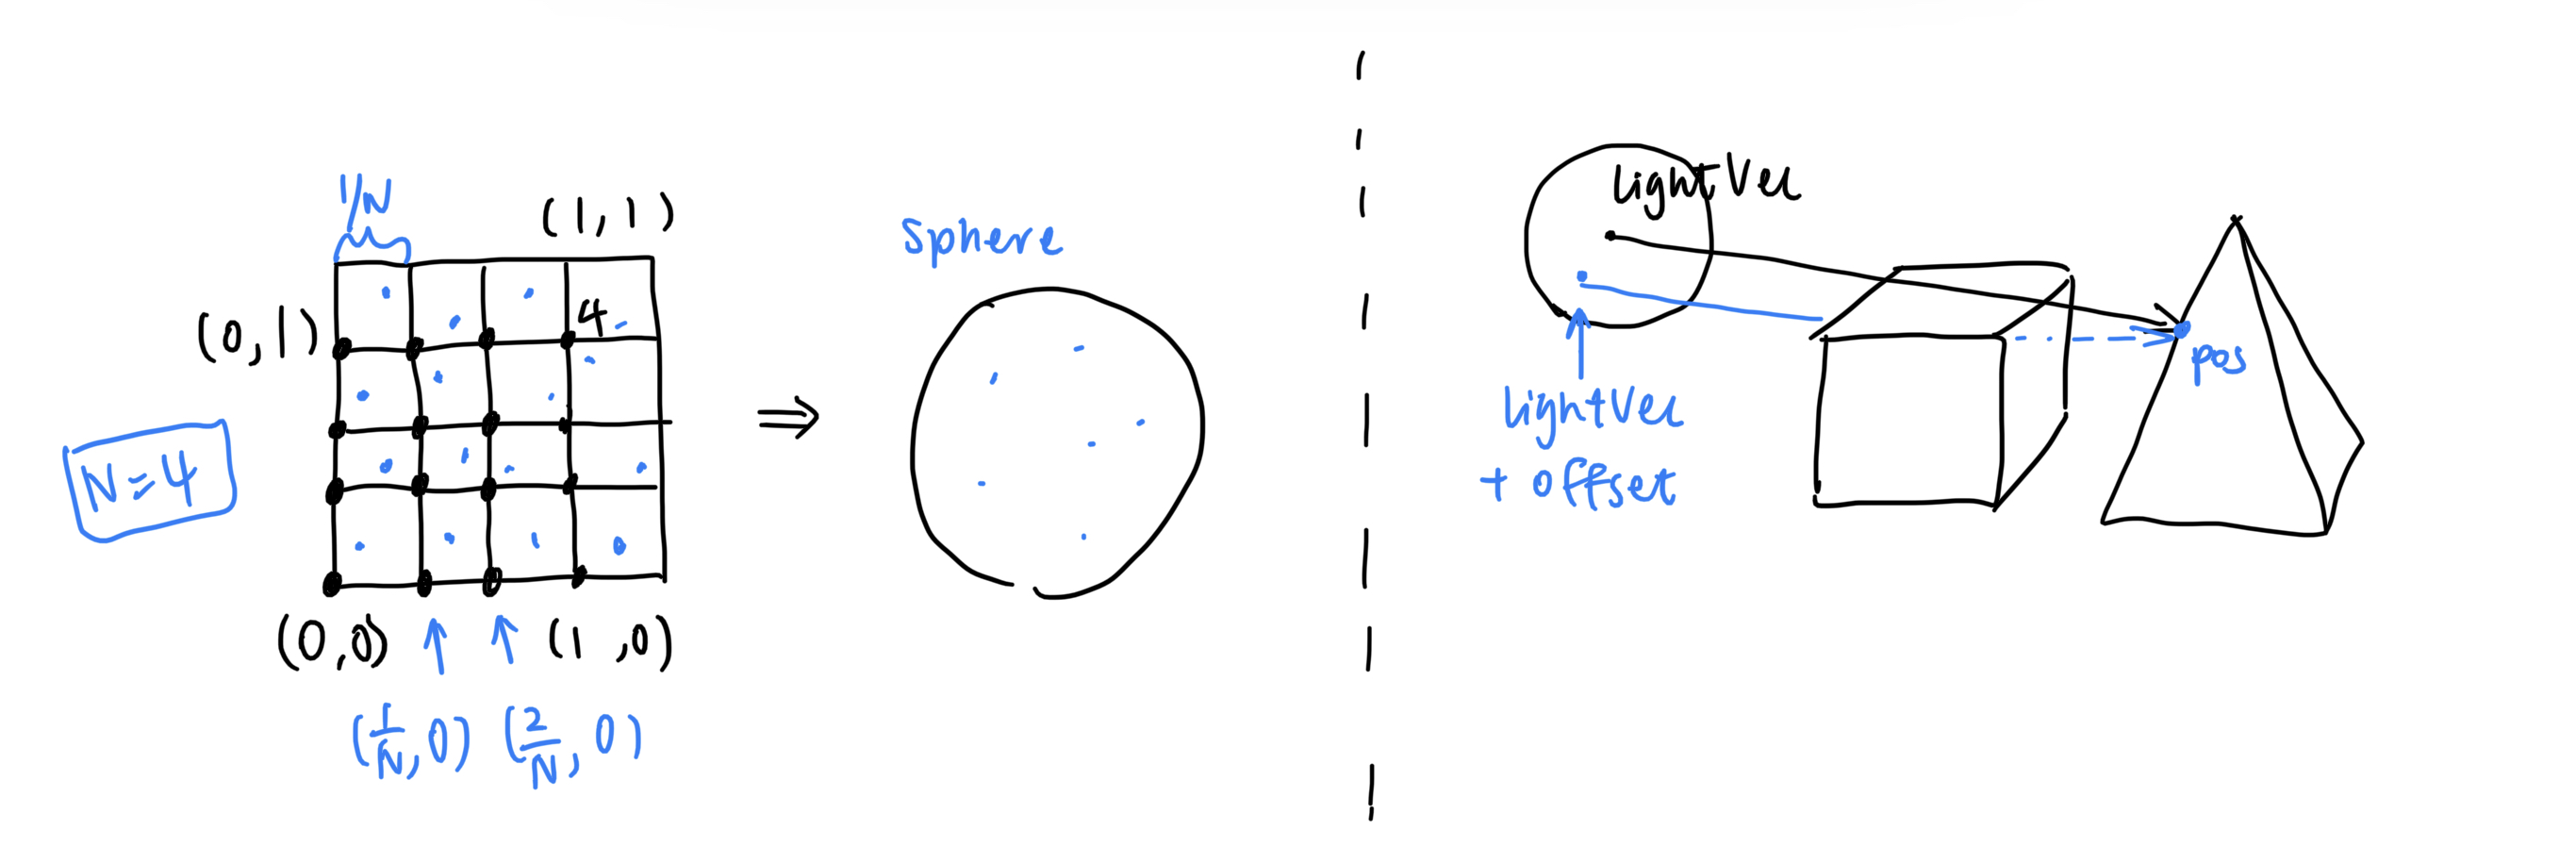 1/N
(1,1)
(0,1)
4
N=4
(0,0)
(1,0)
(1/N,0) (2/N,0)
Sphere
lightVec
lightVec
+ offset
pos